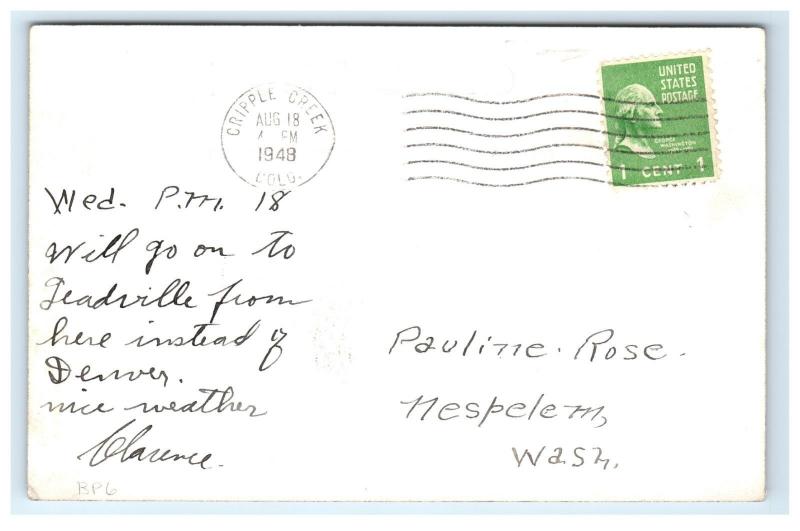 CRIPPLE CREEK
AUG 18
4 PM
1948
COLO.
UNITED
STATES
POSTAGE
GEORGE
WASHINGTON
1 CENT 1
Wed. P.M. 18
Will go on to
Leadville from
here instead of
Denver.
nice weather
Clarence.
Pauline. Rose.
Nespelem,
Wash.
BP6